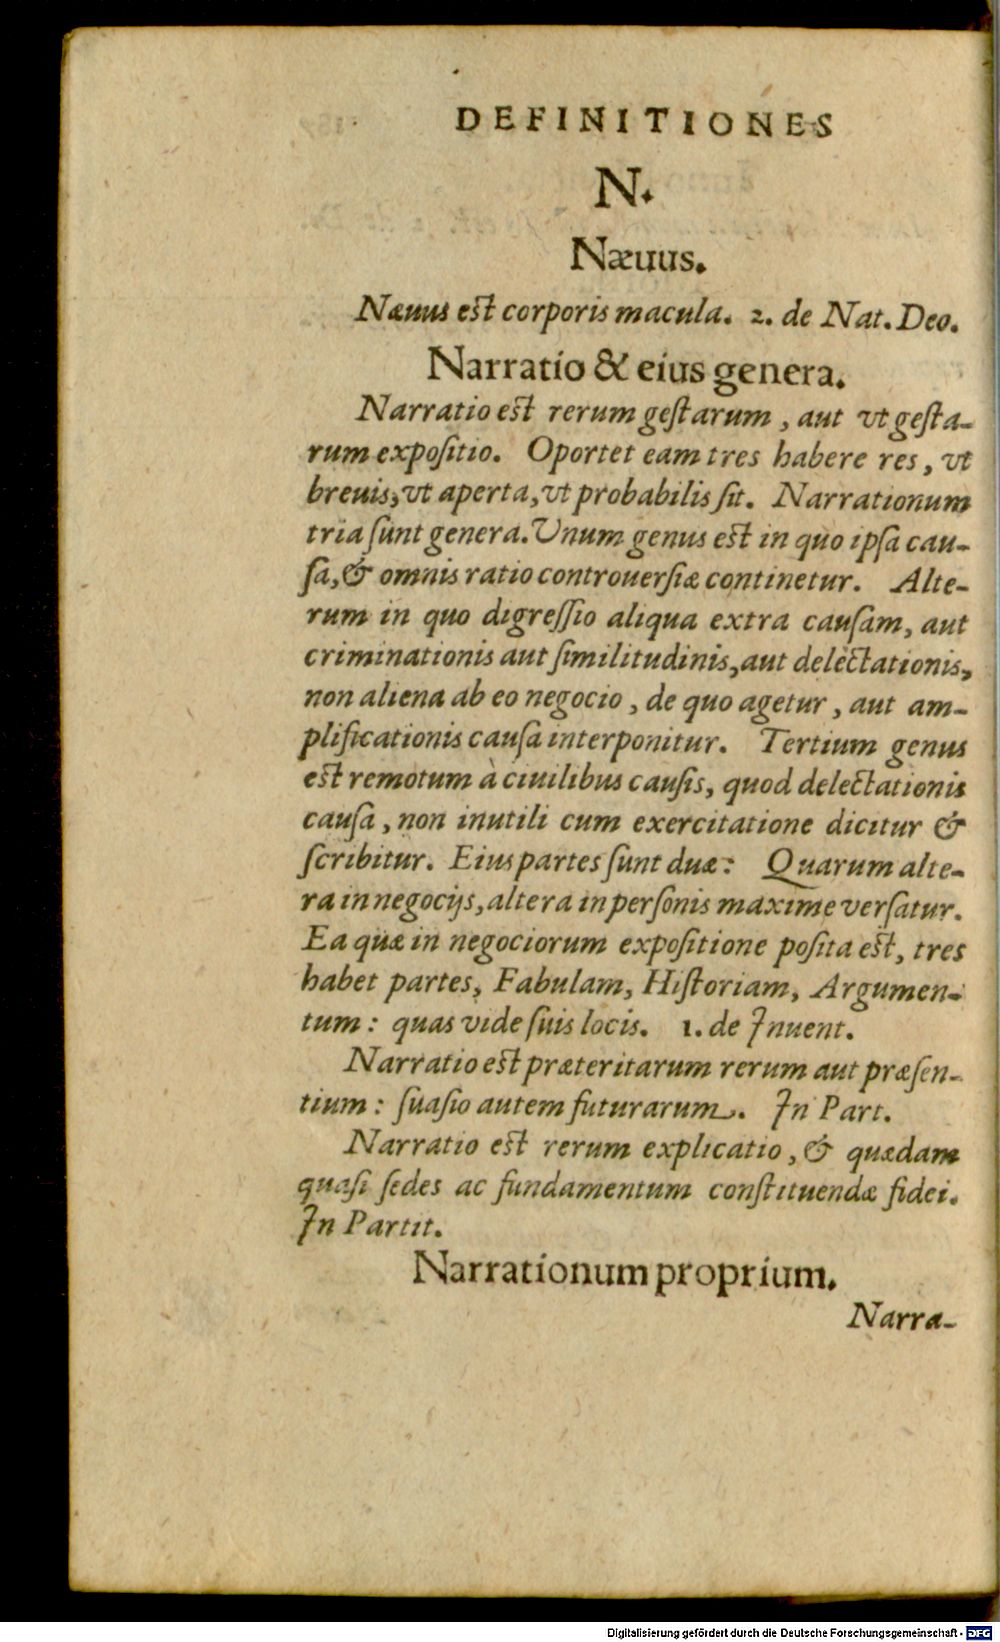 DEFINITIONES
N.
Næuus.
Næuus est corporis macula. 2. de Nat. Deo.
Narratio & eius genera.
Narratio est rerum geſtarum, aut vt geſta-
rum expoſitio. Oportet eam tres habere res, vt
breuis, vt aperta, vt probabilis ſit. Narrationum
tria ſunt genera. Vnum genus est in quo ipſa cau-
ſa, & omnis ratio controuerſiæ continetur. Alte-
rum in quo digreſſio aliqua extra cauſam, aut
criminationis aut ſimilitudinis, aut delectationis,
non aliena ab eo negocio, de quo agetur, aut am-
plificationis cauſa interponitur. Tertium genus
est remotum à ciuilibus cauſis, quod delectationis
cauſa, non inutili cum exercitatione dicitur &
ſcribitur. Eius partes ſunt duæ: Quarum alte-
ra in negocijs, altera in perſonis maxime verſatur.
Ea quæ in negociorum expoſitione poſita est, tres
habet partes, Fabulam, Hiſtoriam, Argumen-
tum: quas vide ſuis locis. 1. de Inuent.
Narratio est præteritarum rerum aut præſen-
tium: ſuaſio autem futurarum. In Part.
Narratio est rerum explicatio, & quædam
quaſi ſedes ac fundamentum conſtituendæ fidei.
In Partit.
Narrationum proprium.
Narra-
Digitalisierung gefördert durch die Deutsche Forschungsgemeinschaft - DFG